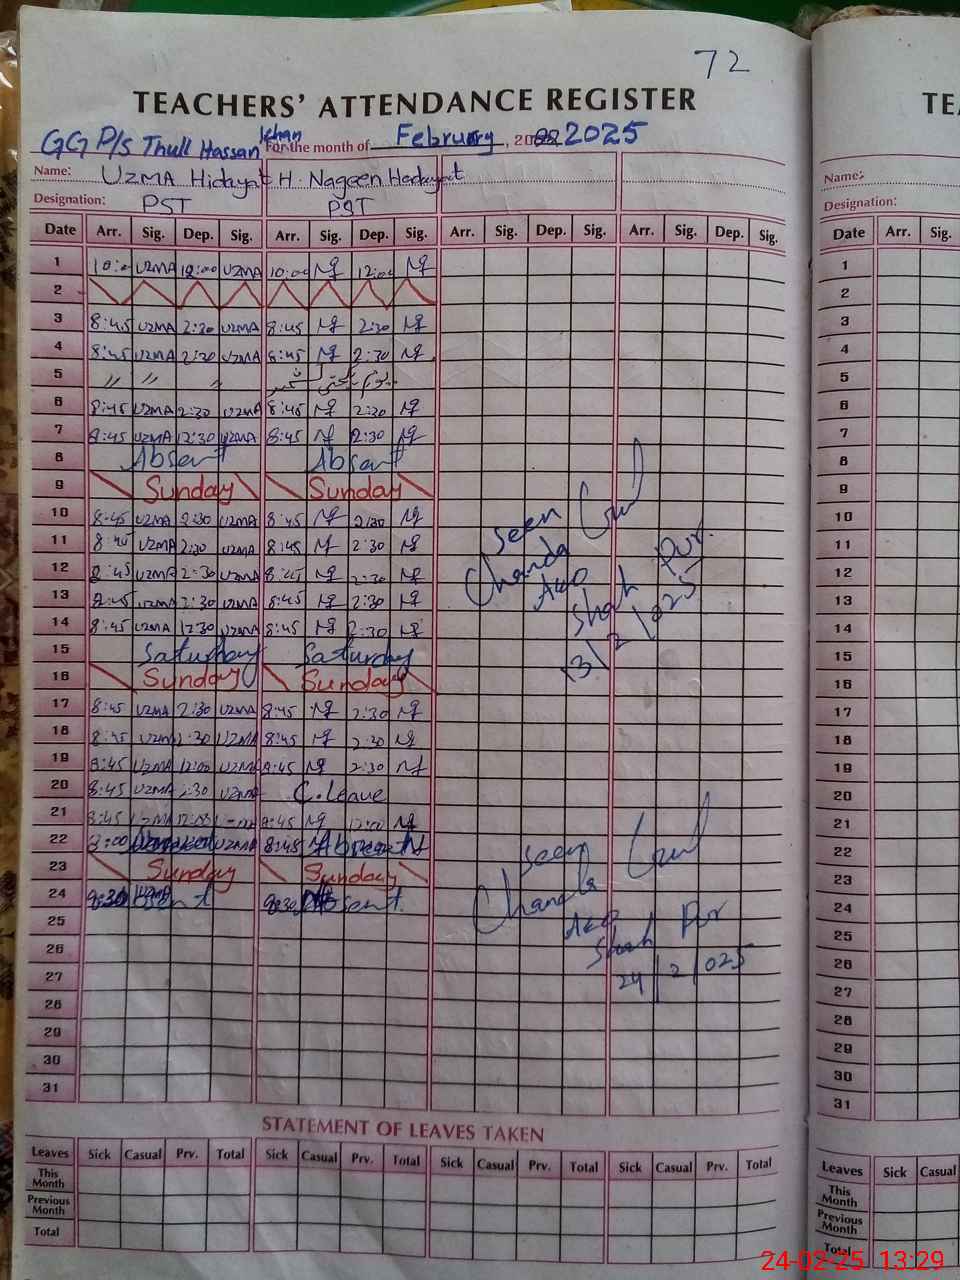 72
TEACHERS' ATTENDANCE REGISTER
TE
GG P/s Thull Hassan khan For the month of February, 2025
Name: UZMA Hidayat H. Nageen Hedayat
Name:
Designation: PST PST
Designation:
Date Arr. Sig. Dep. Sig. Arr. Sig. Dep. Sig. Arr. Sig. Dep. Sig. Arr. Sig. Dep. Sig.
Date Arr. Sig.
1 UZMA 12:00 UZMA 10:00 12:00
2
3 8:45 UZMA 2:30 UZMA 8:45 2:30
4 8:45 UZMA 2:30 UZMA 8:45 2:30
5 // // //
6 8:45 UZMA 2:30 UZMA 8:45 2:30
7 8:45 UZMA 2:30 UZMA 8:45 2:30
8 Absent Absent
9 Sunday Sunday
10 8:45 UZMA 2:30 UZMA 8:45 2:30
11 8:45 UZMA 2:30 UZMA 8:45 2:30
12 8:45 UZMA 2:30 UZMA 8:45 2:30
13 8:45 UZMA 2:30 UZMA 8:45 2:30
14 8:45 UZMA 2:30 UZMA 8:45 2:30
15 Saturday Saturday
16 Sunday Sunday
17 8:45 UZMA 2:30 UZMA 8:45 2:30
18 8:45 UZMA 2:30 UZMA 8:45 2:30
19 8:45 UZMA 12:00 UZMA 8:45 2:30
20 8:45 UZMA 2:30 UZMA C. Leave
21 8:45 12:00 8:45 12:00
22 UZMA 8:45 Absent
23 Sunday Sunday
24 Absent Absent
25
26
27
28
29
30
31
seen
Chanda
Shah Pur.
13/2/025
seen
Chanda
Shah Pur
24/2/025
1
2
3
4
5
6
7
8
9
10
11
12
13
14
15
16
17
18
19
20
21
22
23
24
25
26
27
28
29
30
31
STATEMENT OF LEAVES TAKEN
Leaves Sick Casual Prv. Total Sick Casual Prv. Total Sick Casual Prv. Total Sick Casual Prv. Total
This Month
Previous Month
Total
Leaves Sick Casual
This Month
Previous Month
Total
24-02-25 13:29